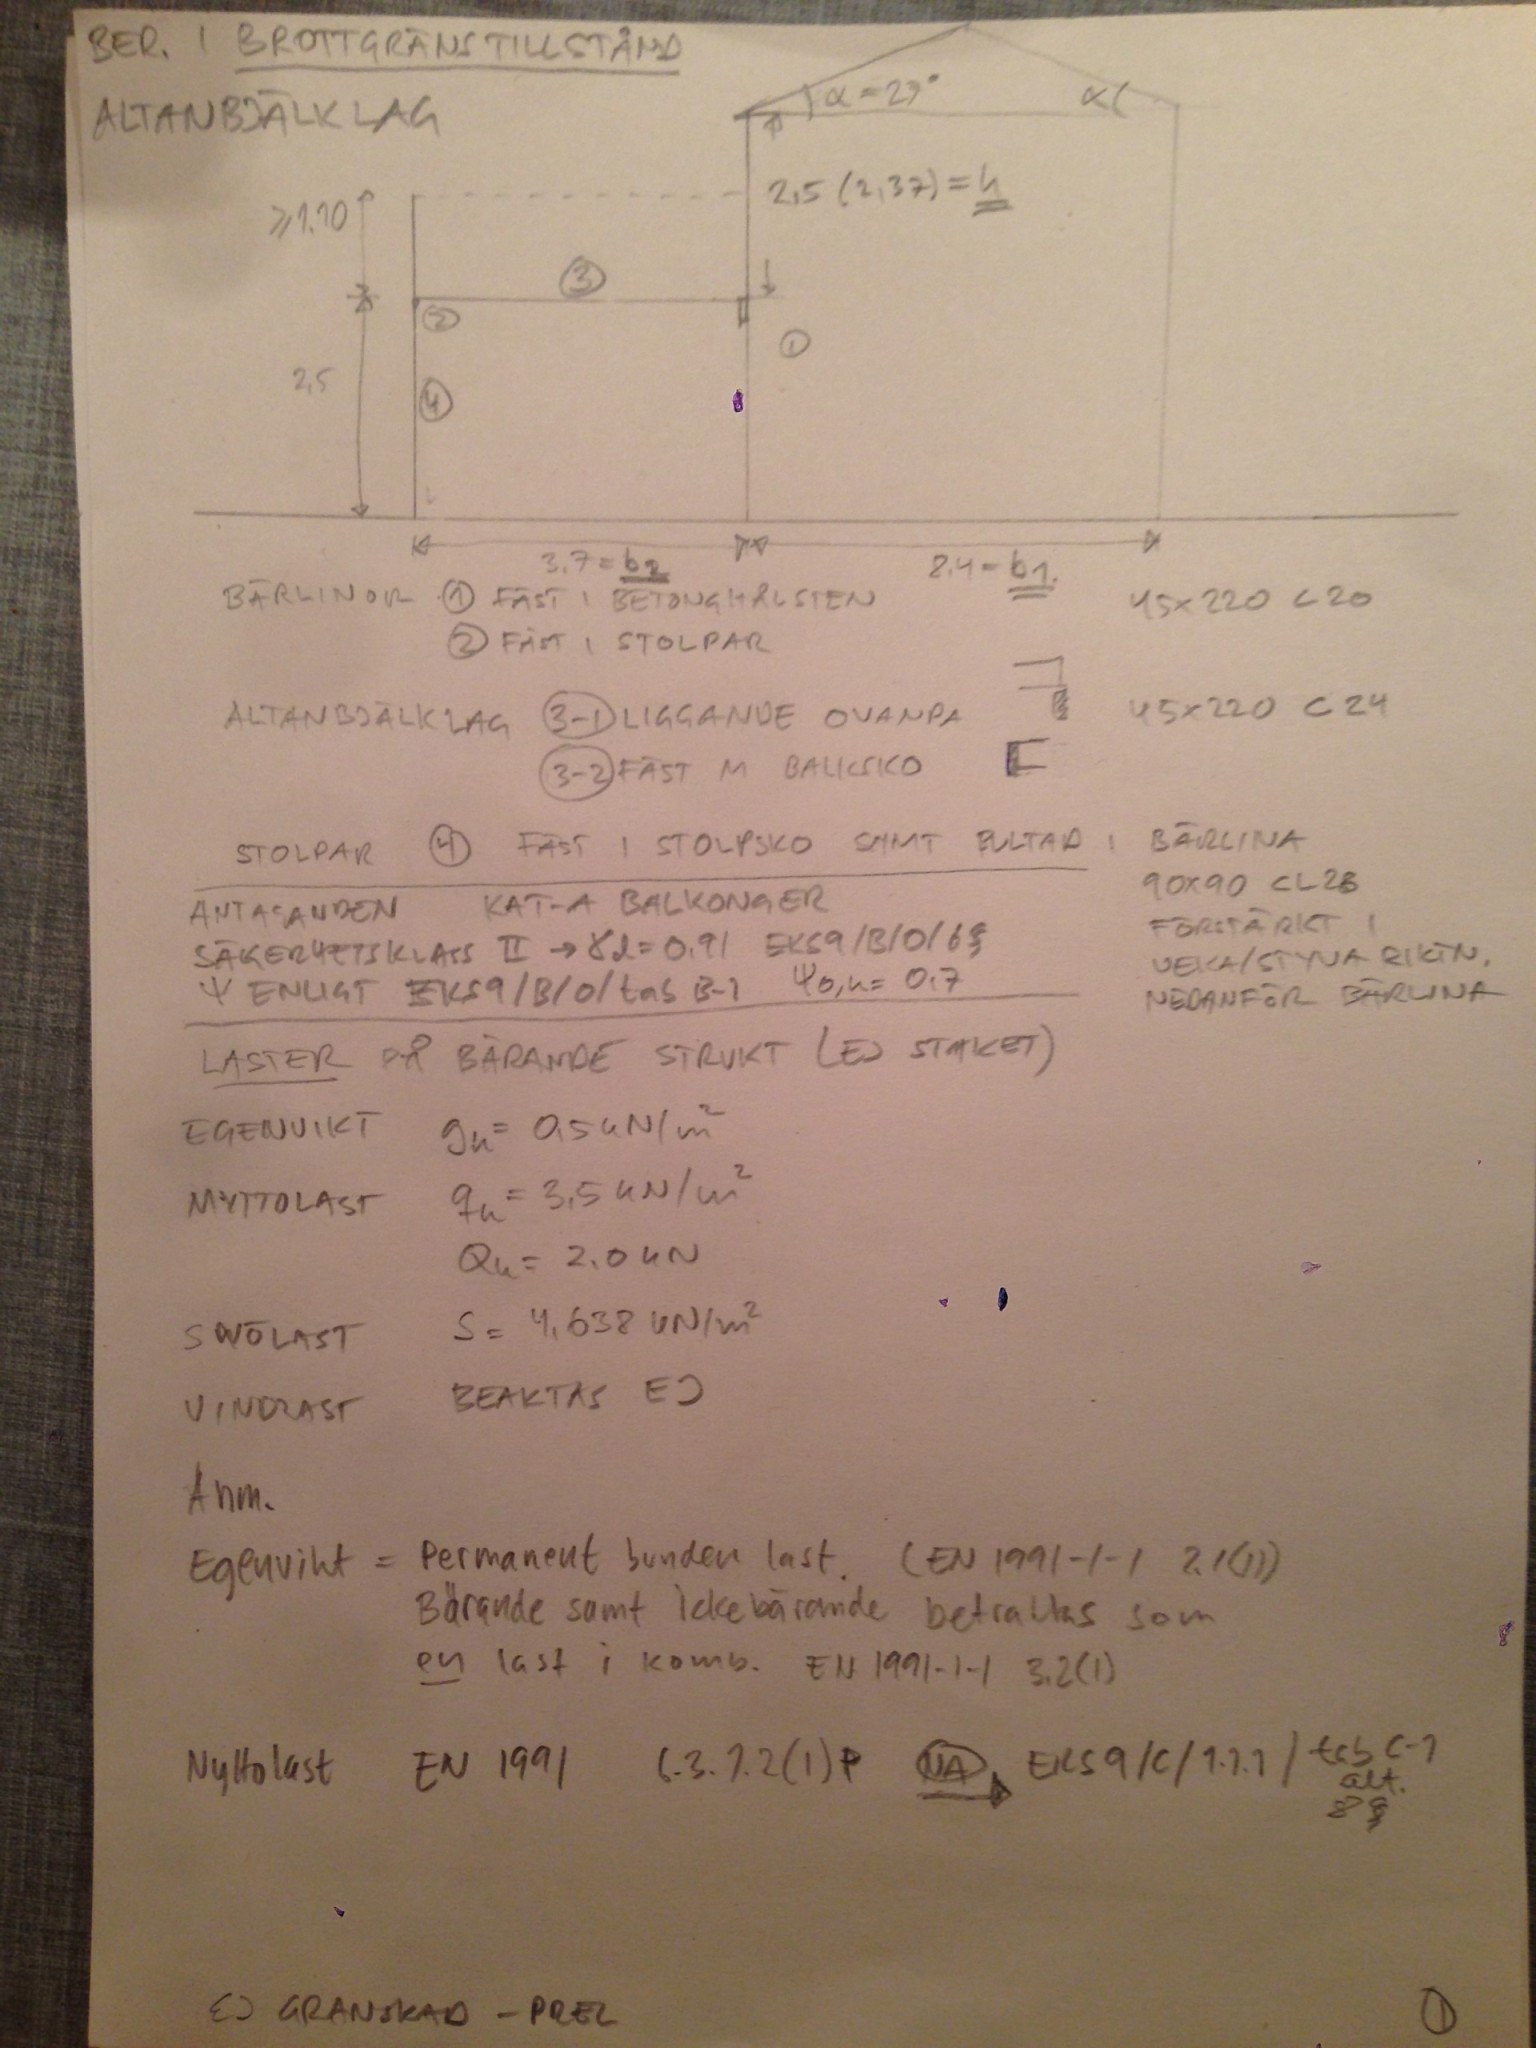 BER. I BROTTGRÄNSTILLSTÅND
ALTANBJÄLKLAG
α = 27° α
≥1.10
2,5 (2,37) = h
3
2
1
2,5
4
3.7 = b2 8.4 = b1.
BÄRLINOR 1 FÄST I BETONGHÅLSTEN 45x220 C20
2 FÄST I STOLPAR
ALTANBJÄLKLAG 3-1 LIGGANDE OVANPÅ 45x220 C24
3-2 FÄST M BALKSKO
STOLPAR 4 FÄST I STOLPSKO SAMT BULTAD I BÄRLINA
90x90 CL28
FÖRSTÄRKT I
VEKA/STYVA RIKTN.
NEDANFÖR BÄRLINA
ANTAGANDEN KAT-A BALKONGER
SÄKERHETSKLASS II → γd = 0.91 EKS9/B/0/6§
Ψ ENLIGT EKS9/B/0/tab B-1 Ψ0,k = 0.7
LASTER PÅ BÄRANDE STRUKT (EJ STAKET)
EGENVIKT gk = 0,5 kN/m²
NYTTOLAST qk = 3,5 kN/m²
Qk = 2.0 kN
SNÖLAST S = 4,638 kN/m²
VINDLAST BEAKTAS EJ
Anm.
Egenvikt = Permanent bunden last. (EN 1991-1-1 2.1(1))
Bärande samt ickebärande betraktas som
en last i komb. EN 1991-1-1 3.2(1)
Nyttolast EN 1991 6.3.1.2(1)P NA → EKS9/C/1.1.1/tab C-1
alt.
8§
EJ GRANSKAD - PREL
1